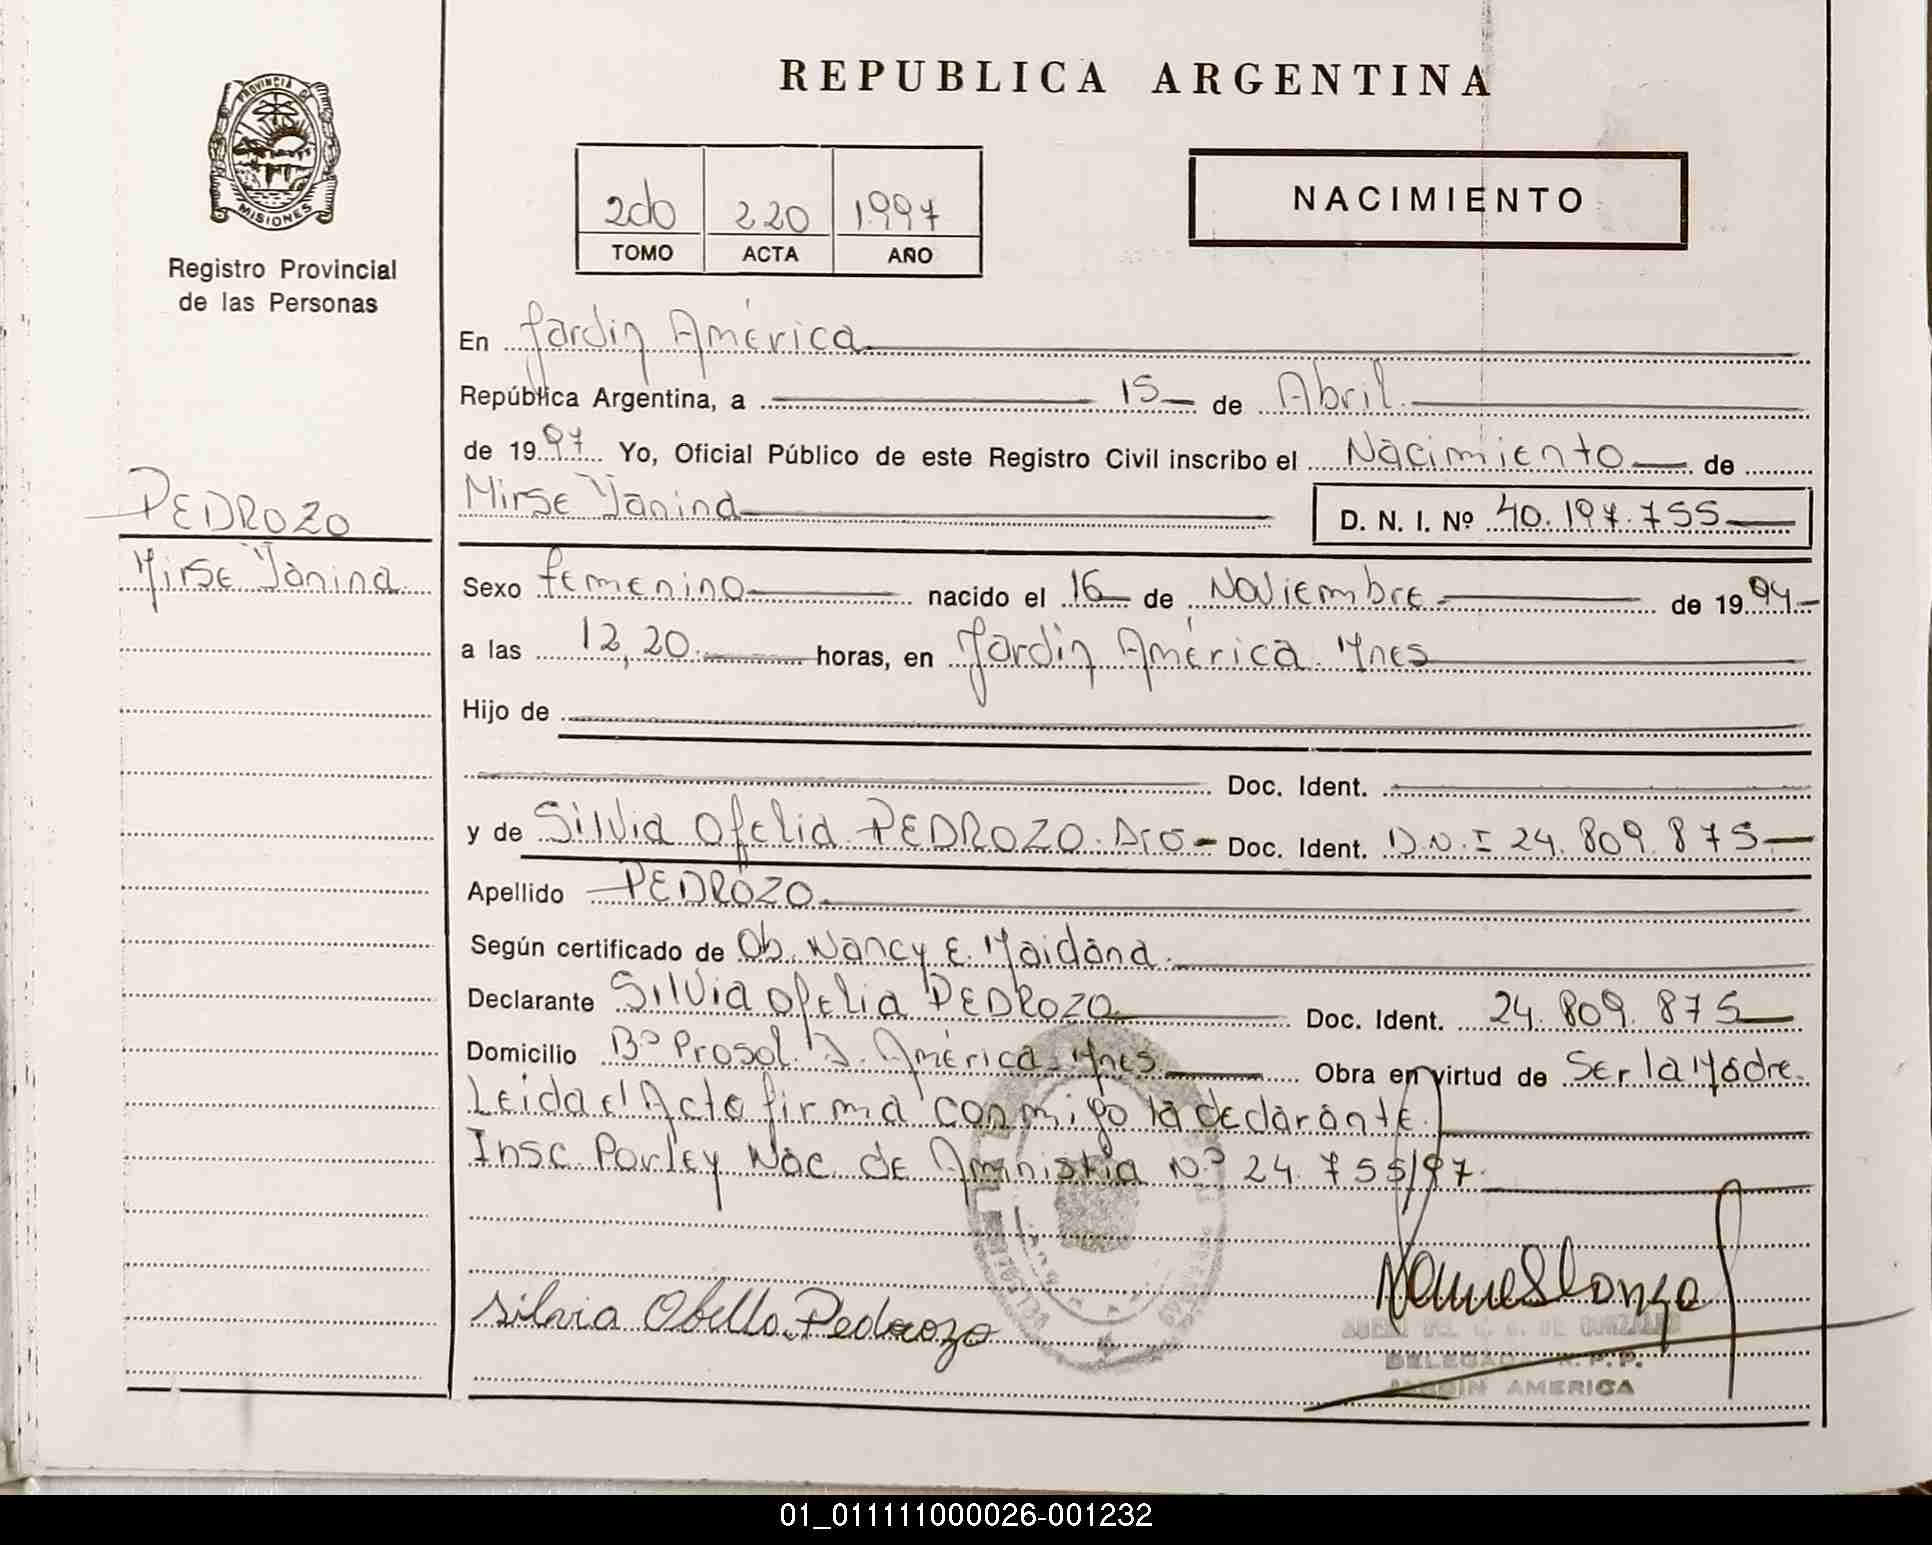 REPUBLICA ARGENTINA
PROVINCIA DE
MISIONES
Registro Provincial
de las Personas
2do 220 1997
TOMO ACTA AÑO
NACIMIENTO
En Jardin América
República Argentina, a 15 de Abril
de 1997 Yo, Oficial Público de este Registro Civil inscribo el Nacimiento de
Mirse Yanina D. N. I. Nº 40.197.755
PEDROZO
Mirse Yanina
Sexo femenino nacido el 16 de Noviembre de 1994
a las 12,20 horas, en Jardin América Mnes
Hijo de
Doc. Ident.
y de Silvia Ofelia PEDROZO Arg Doc. Ident. D.N.I 24.809.875
Apellido PEDROZO
Según certificado de Ob. Nancy E. Maidana
Declarante Silvia Ofelia PEDROZO Doc. Ident. 24.809.875
Domicilio Bº Prosol J. América Mnes Obra en virtud de Ser la Madre
Leida el Acta firma conmigo la declarante
Insc Por Ley Nac. de Amnistia Nº 24.755/97
Silvia Ofelia Pedrozo
DELEGADA R.P.P.
JARDIN AMERICA
01_011111000026-001232